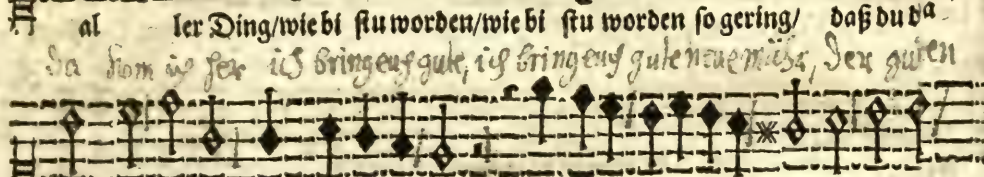 al ler Ding/wie bi stu worden/wie bi stu worden so gering/ daß du da
da kom ich her ich bring euch gute, ich bring euch gute neue mähr, Der guten